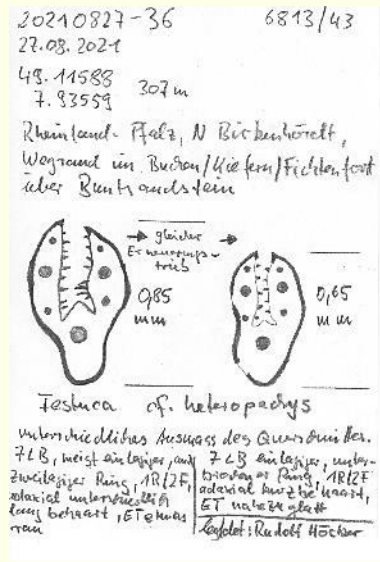 20210827-36 6813/43
27.08.2021
49.11588
7.93559 307m
Rheinland-Pfalz, N Birkenhördt,
Wegrand im Buchen/Kiefern/Fichtenforst
über Buntsandstein
gleicher
Erneuerungs-
trieb
0,85
mm
0,65
mm
Festuca cf. heteropachys
unterschiedliches Ausmass des Querschnittes.
7 LB, meist einlagiger, auch
zweilagiger Ring, 1R/2F,
adaxial unterschiedlich
lang behaart, ET etwas
rau
7 LB einlagiger, unter-
brochener Ring, 1R/2F
adaxial kurz behaart,
ET nahezu glatt
leg/det: Rudolf Höcker